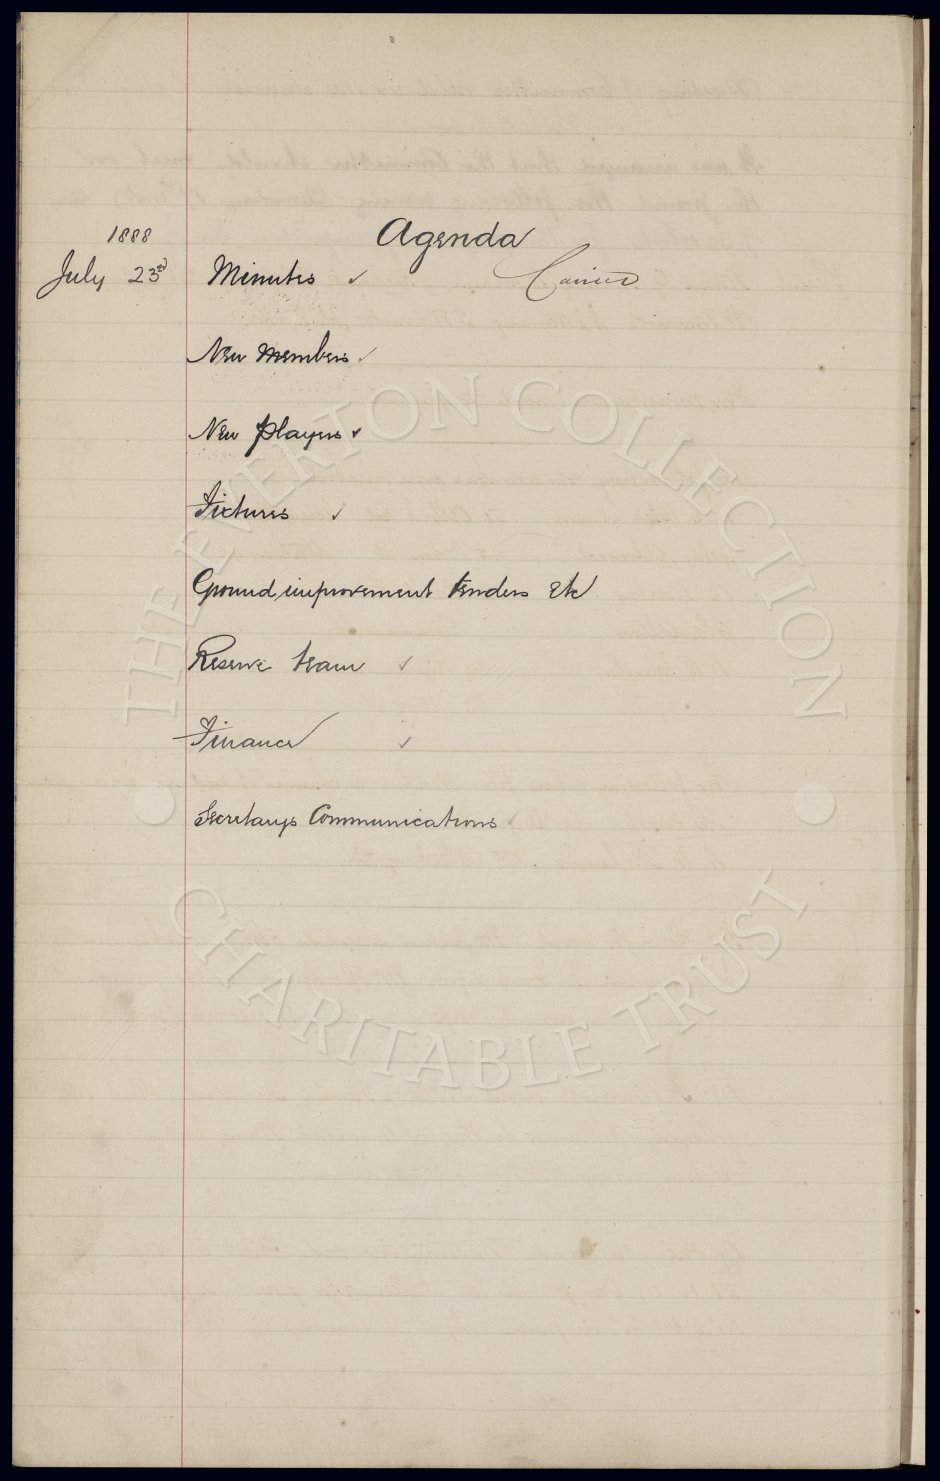 Agenda
1888
July 23rd Minutes ✓ Carried
New Members ✓
New players ✓
Fixtures ✓
Ground improvement tenders Etc
Reserve team ✓
Finance ✓
Secretarys Communications ✓
THE EVERTON COLLECTION
CHARITABLE TRUST